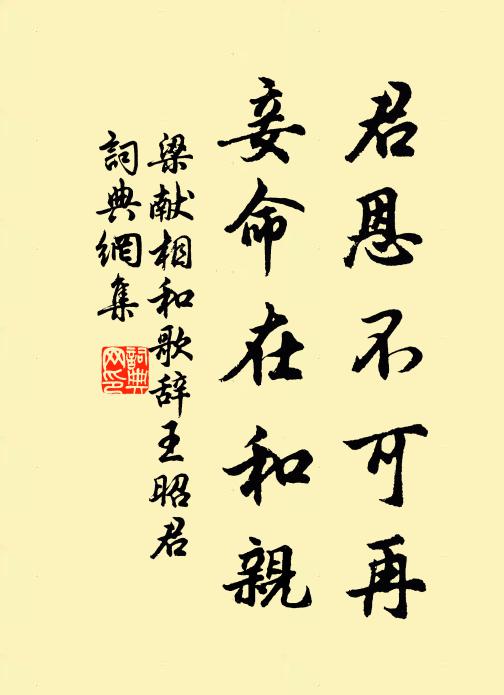 君恩不可再
妾命在和親
梁献相和歌辞王昭君
詞典網集
詞典網印